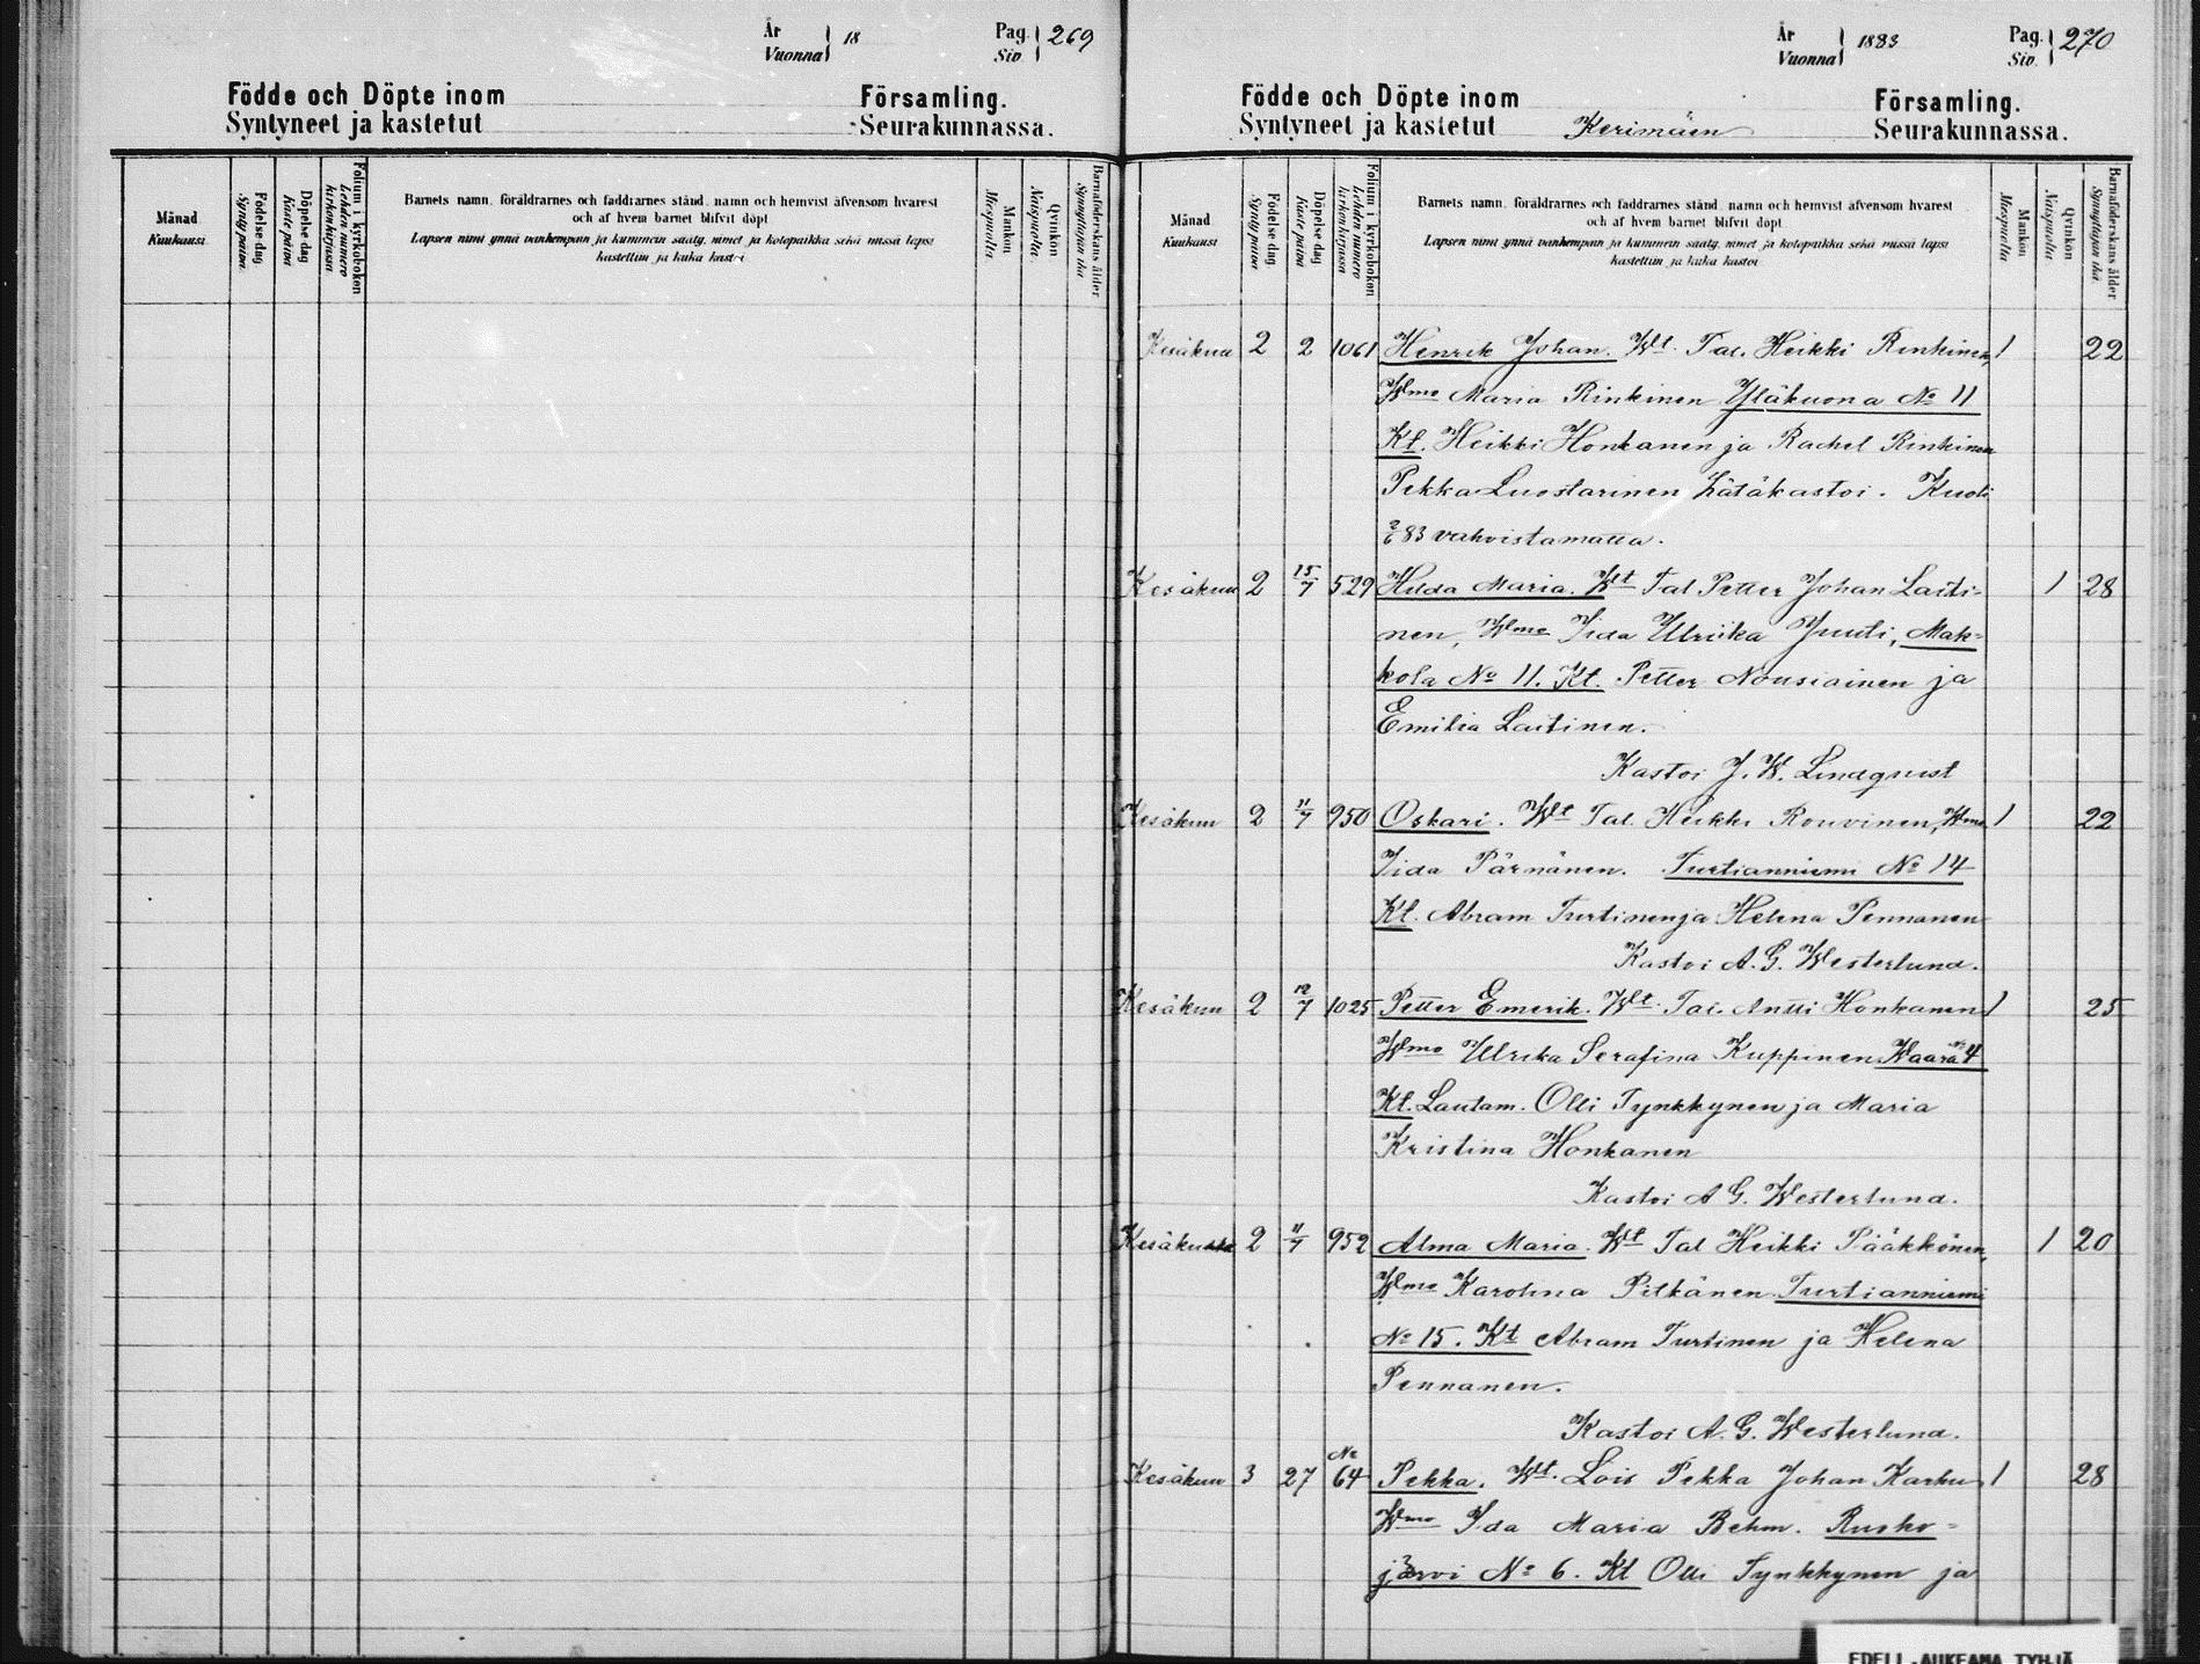 År
Vuonna } 18
Pag.
Siv. } 269
Födde och Döpte inom Församling.
Syntyneet ja kastetut Seurakunnassa.
Månad
Kuukausi
Födelse dag
Synty päivä
Döpelse dag
Kaste päivä
Folium i kyrkoboken
Lehden numero
kirkonkirjassa
Barnets namn, föräldrarnes och faddrarnes stånd, namn och hemvist äfvensom hvarest
och af hvem barnet blifvit döpt
Lapsen nimi ynnä vanhempain ja kummein sääty, nimet ja kotopaikka sekä missä lapsi
kastettiin ja kuka kastoi
Mankön
Miespuolia
Qvinkön
Naispuolia
Barnaföderskans ålder
Synnyttäjän ikä
År
Vuonna } 1883
Pag.
Siv. } 270
Födde och Döpte inom Församling.
Syntyneet ja kastetut Kerimäen Seurakunnassa.
Månad
Kuukausi
Födelse dag
Synty päivä
Döpelse dag
Kaste päivä
Folium i kyrkoboken
Lehden numero
kirkonkirjassa
Barnets namn, föräldrarnes och faddrarnes stånd, namn och hemvist äfvensom hvarest
och af hvem barnet blifvit döpt
Lapsen nimi ynnä vanhempain ja kummein sääty, nimet ja kotopaikka sekä missä lapsi
kastettiin ja kuka kastoi
Mankön
Miespuolia
Qvinkön
Naispuolia
Barnaföderskans ålder
Synnyttäjän ikä
Kesäkuu 2 2 1061 Henrik Johan. Wt. Tal. Heikki Rinkinen, 1 22
Wmo Maria Rinkinen Yläkuona No 11
Kt. Heikki Honkanen ja Rachel Rinkinen
Pekka Luostarinen hätäkastoi. Kuoli
2/6 83 vahvistamatta.
Kesäkuu 2 15/7 529 Hilda Maria. Wt Tal Petter Johan Laiti- 1 28
nen, Wmo Iida Ulriika Juuti, Mak-
kola No 11. Kt. Petter Nousiainen ja
Emilia Laitinen.
Kastoi J. W. Lindqvist
Kesäkuu 2 11/7 950 Oskari. Wt Tal. Heikki Rouvinen, Wmo 1 22
Iida Pärnänen. Turtianniemi No 14
Kt. Abram Turtinen ja Helena Pennanen
Kastoi A. G. Westerlund.
Kesäkuu 2 12/7 1025 Petter Emerik. Wt. Tal. Antti Honkanen 1 25
Wmo Ulrika Serafina Kuppinen Waara No 4
Kt. Lautam. Olli Tynkkynen ja Maria
Kristina Honkanen
Kastoi A G. Westerlund.
Kesäkuu 2 11/7 952 Alma Maria. Wt Tal Heikki Pääkkönen, 1 20
Wmo Karolina Pitkänen Turtianniemi
No 15. Kt Abram Turtinen ja Helena
Pennanen.
Kastoi A. G. Westerlund.
Kesäkuu 3 27 No 64 Pekka. Wt. Lois Pekka Johan Karhu 1 28
Wmo Ida Maria Behm. Rusko-
järvi No 6. Kt Olli Tynkkynen ja
EDELL. AUKEAMA TYHJÄ